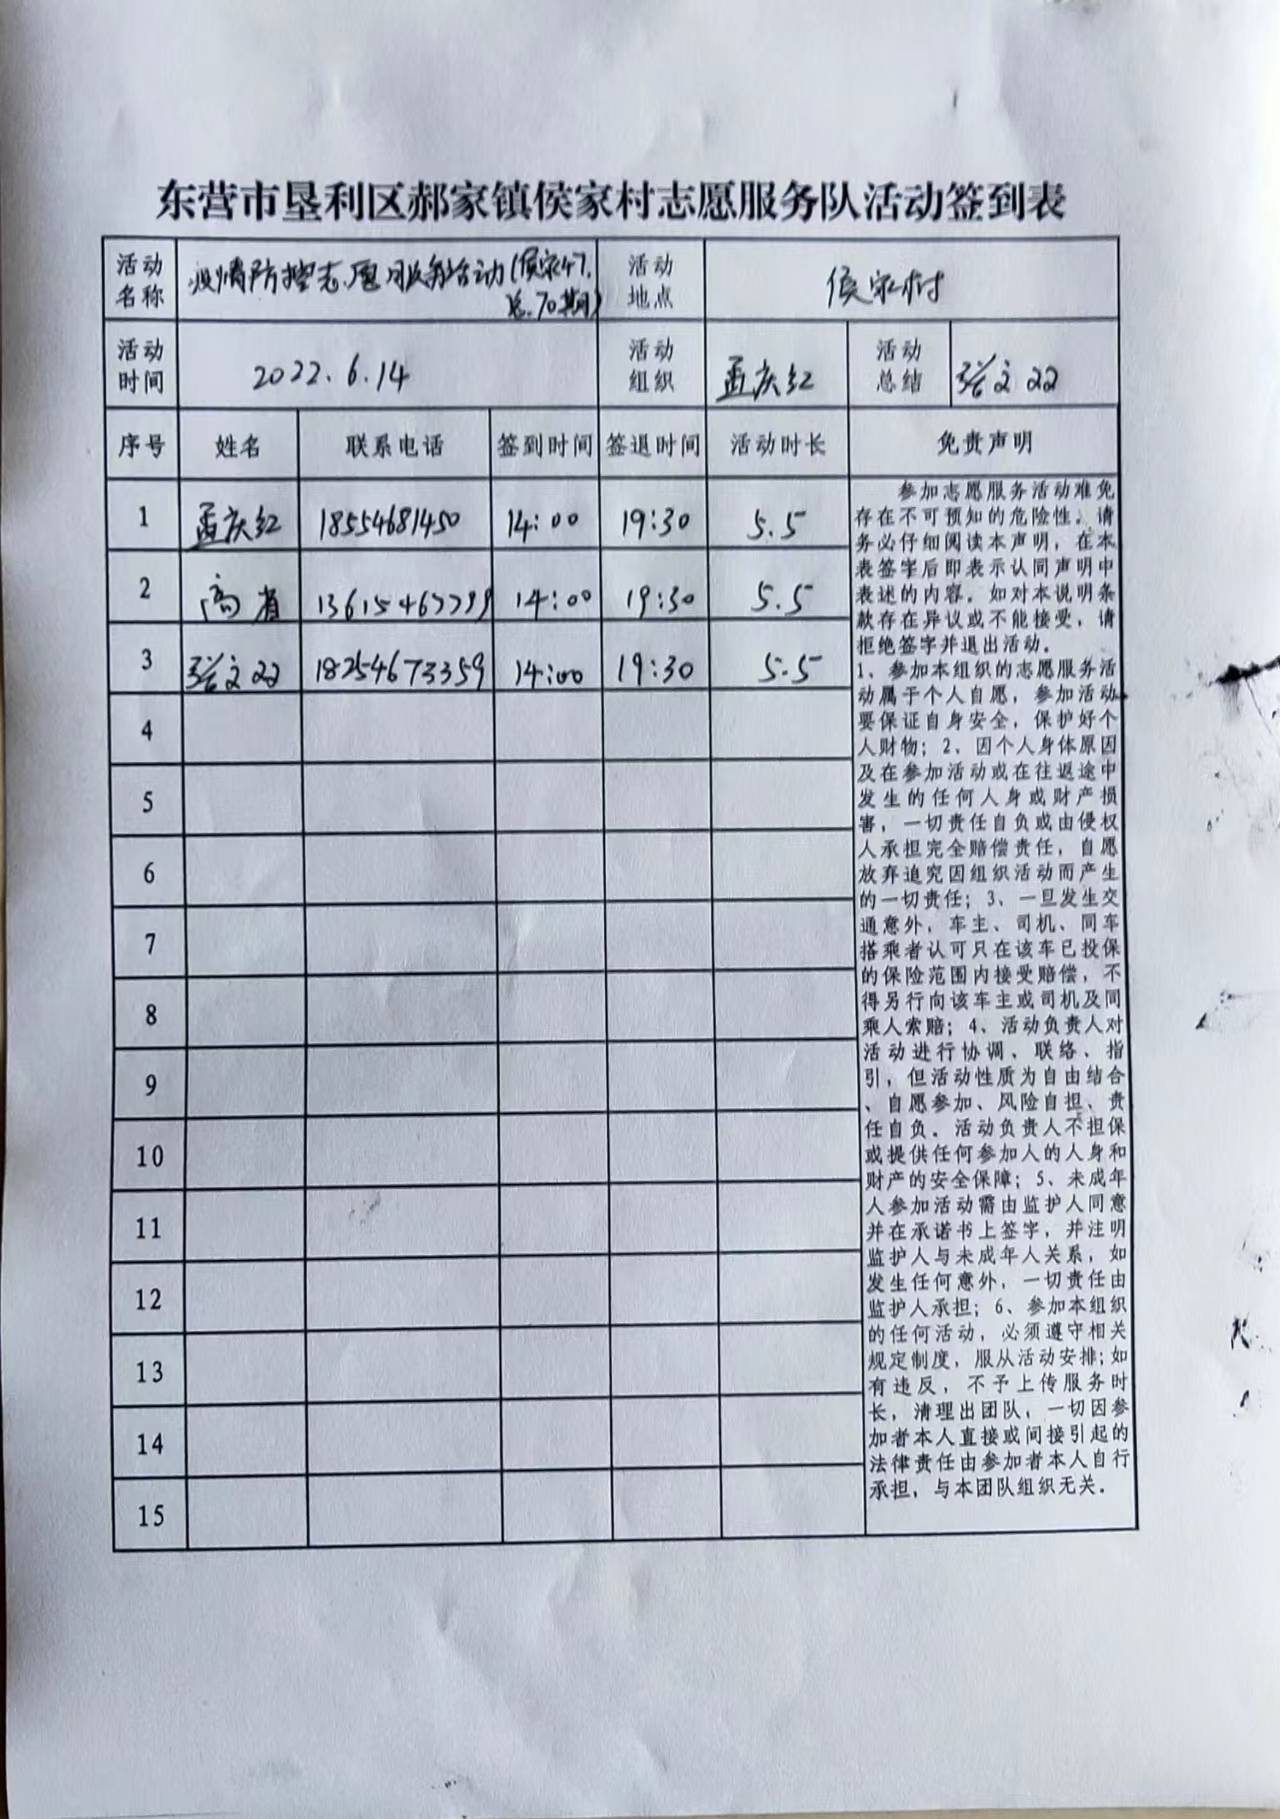 东营市垦利区郝家镇侯家村志愿服务队活动签到表
活动名称 疫情防控志愿服务活动(侯家47.总.70期) 活动地点 侯家村
活动时间 2022.6.14 活动组织 孟庆红 活动总结 张文双
序号 姓名 联系电话 签到时间 签退时间 活动时长 免责声明
1 孟庆红 18554681450 14:00 19:30 5.5
2 高省 14:00 19:30 5.5
3 张文双 18254673359 14:00 19:30 5.5
4
5
6
7
8
9
10
11
12
13
14
15
参加志愿服务活动难免
存在不可预知的危险性。请
务必仔细阅读本声明，在本
表签字后即表示认同声明中
表述的内容。如对本说明条
款存在异议或不能接受，请
拒绝签字并退出活动。
1、参加本组织的志愿服务活
动属于个人自愿，参加活动
要保证自身安全，保护好个
人财物；2、因个人身体原因
及在参加活动或在往返途中
发生的任何人身或财产损
害，一切责任自负或由侵权
人承担完全赔偿责任，自愿
放弃追究因组织活动而产生
的一切责任；3、一旦发生交
通意外，车主、司机、同车
搭乘者认可只在该车已投保
的保险范围内接受赔偿，不
得另行向该车主或司机及同
乘人索赔；4、活动负责人对
活动进行协调、联络、指
引，但活动性质为自由结合
、自愿参加、风险自担、责
任自负。活动负责人不担保
或提供任何参加人的人身和
财产的安全保障；5、未成年
人参加活动需由监护人同意
并在承诺书上签字，并注明
监护人与未成年人关系，如
发生任何意外，一切责任由
监护人承担；6、参加本组织
的任何活动，必须遵守相关
规定制度，服从活动安排；如
有违反，不予上传服务时
长，清理出团队，一切因参
加者本人直接或间接引起的
法律责任由参加者本人自行
承担，与本团队组织无关。